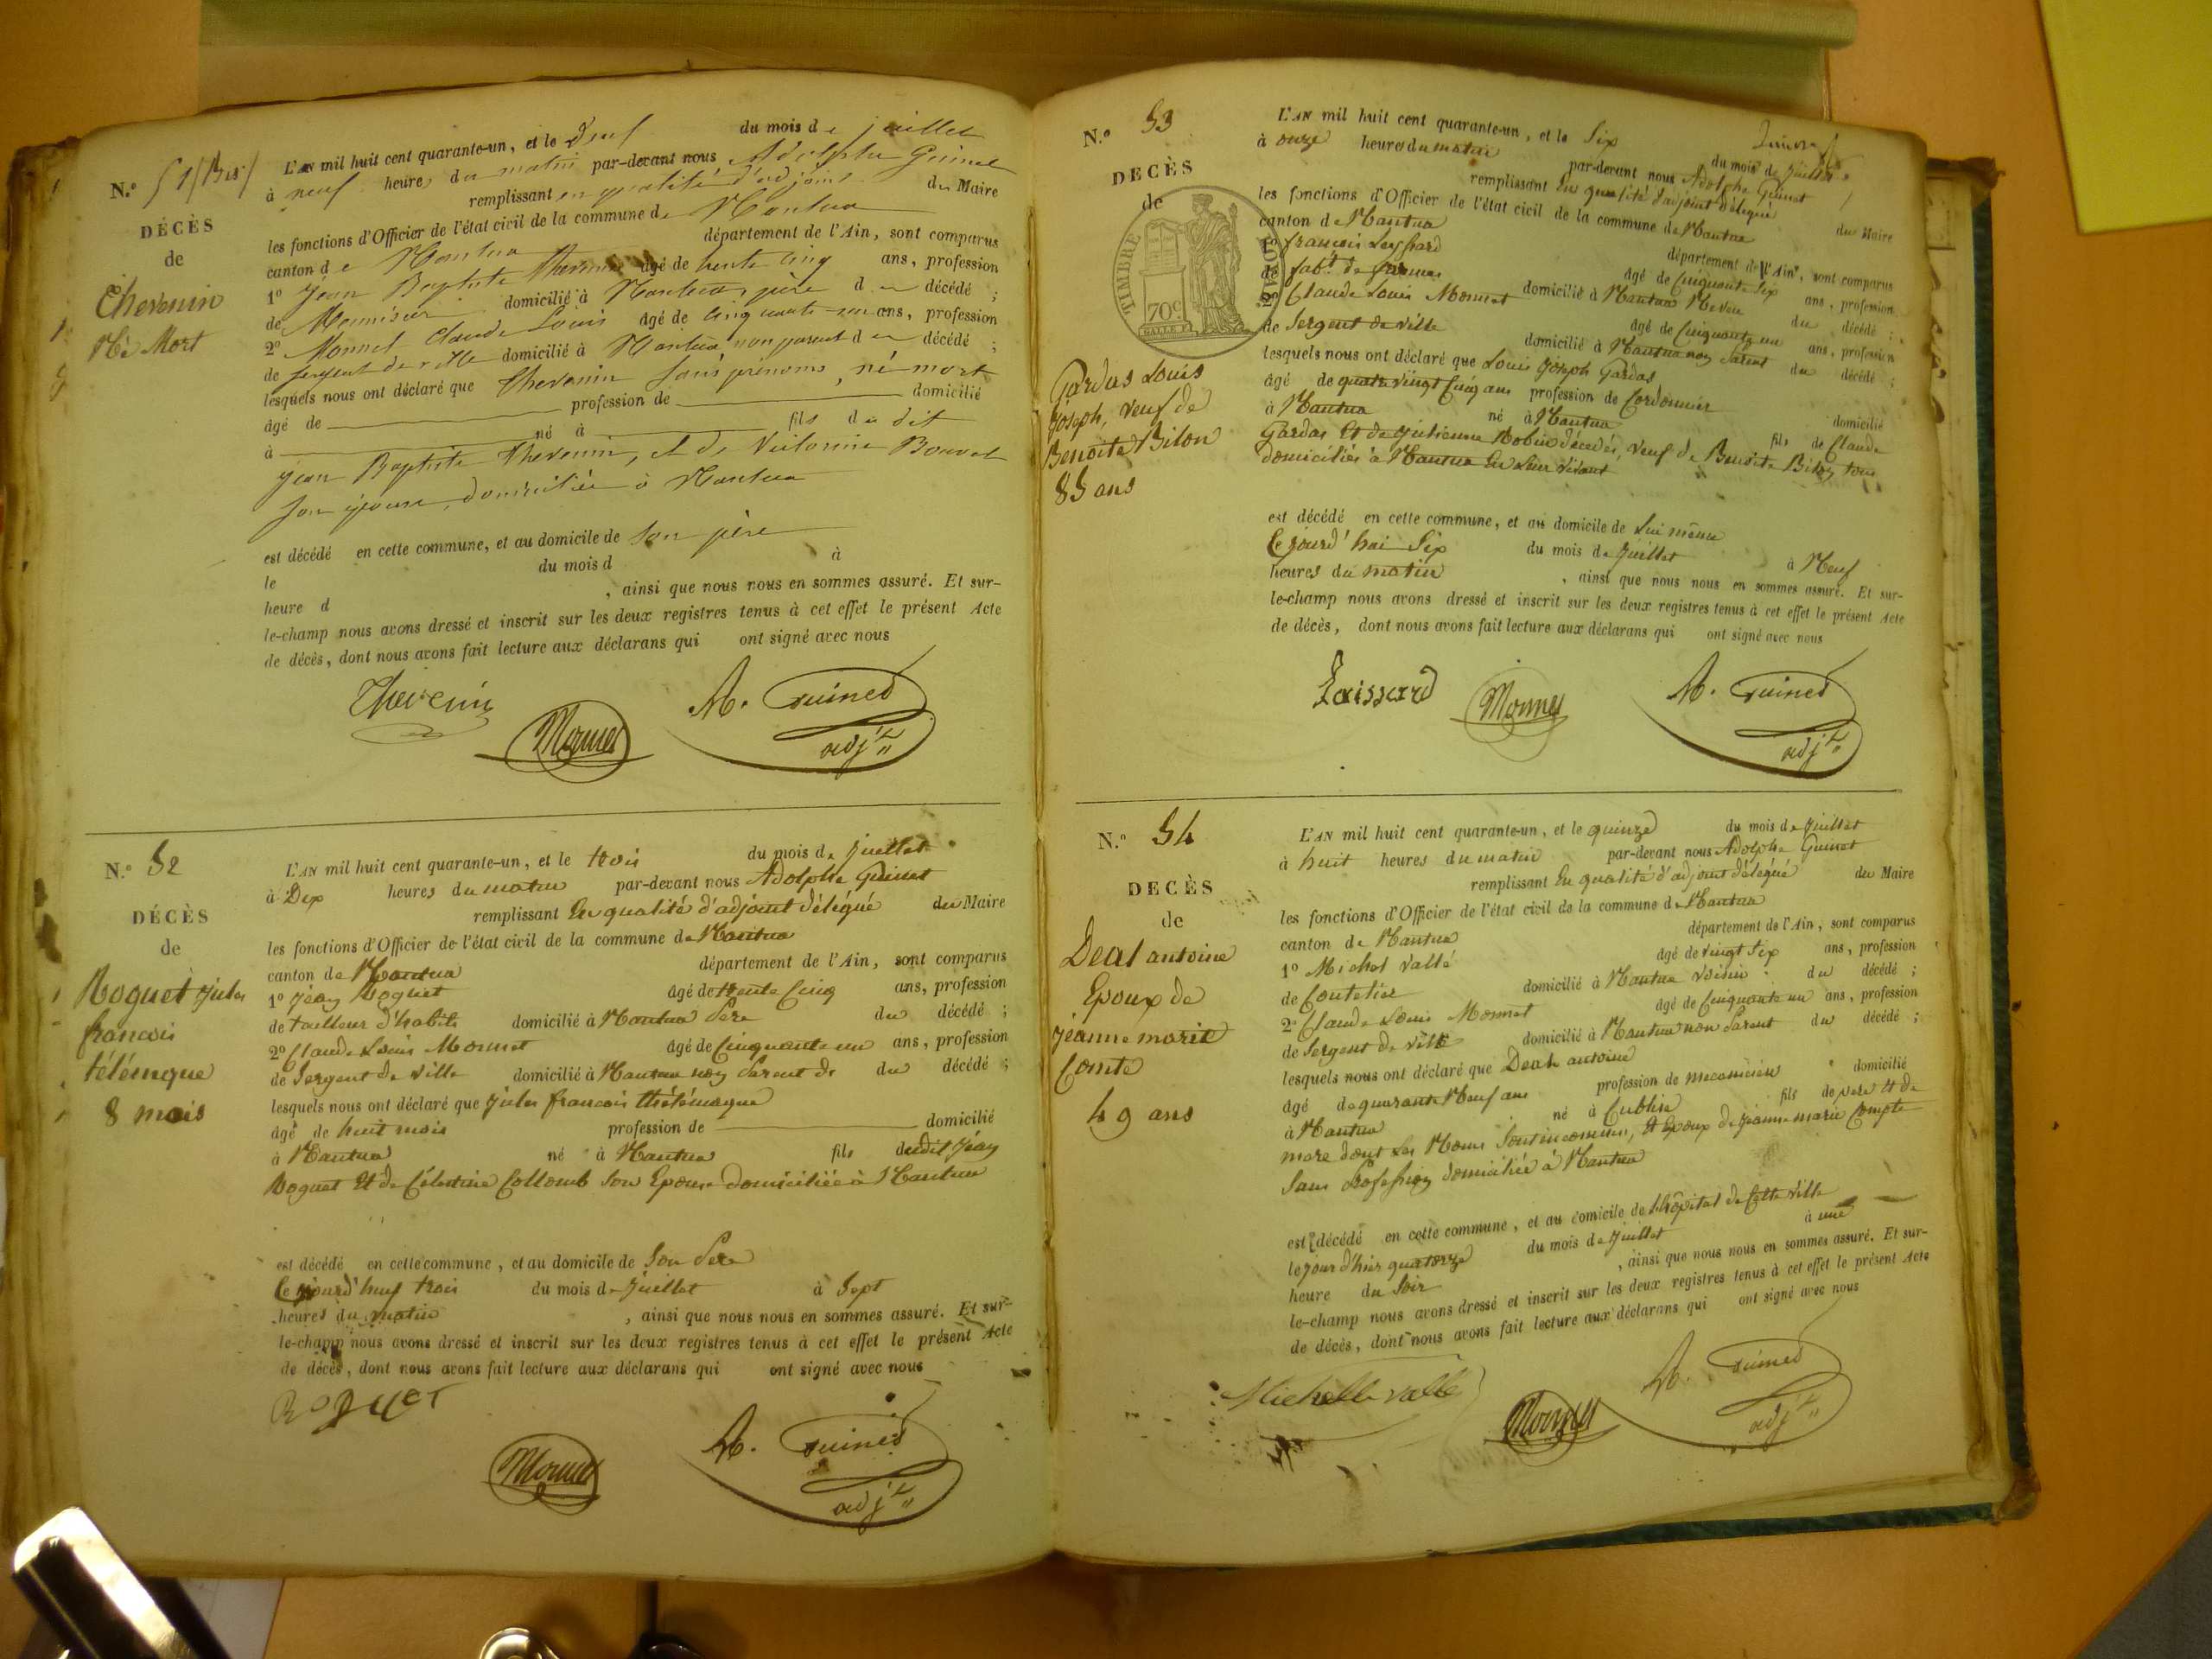 N.º 51 (Bis)
DÉCÈS
de
Thevenin
Né Mort
L'AN mil huit cent quarante-un, et le deux du mois de juillet
à neuf heures du matin par-devant nous Adolphe Guinet
remplissant en qualité d'adjoint du Maire
les fonctions d'Officier de l'état civil de la commune de Nantua
canton de Nantua département de l'Ain, sont comparus
1º Jean Baptiste Thevenin âgé de trente cinq ans, profession
de Menuisier domicilié à Nantua, père du décédé ;
2º Monnet Claude Louis âgé de cinquante un ans, profession
de sergent de ville domicilié à Nantua non parent du décédé ;
lesquels nous ont déclaré que Thevenin sans prénoms, né mort
âgé de profession de domicilié
à né à fils du dit
Jean Baptiste Thevenin, et de Victorine Bouvet
son épouse, domiciliée à Nantua
est décédé en cette commune, et au domicile de son père
le du mois d à
heure d , ainsi que nous nous en sommes assuré. Et sur-
le-champ nous avons dressé et inscrit sur les deux registres tenus à cet effet le présent Acte
de décès, dont nous avons fait lecture aux déclarans qui ont signé avec nous
Thevenin
Monnet
A. Guinet
adjt
N.º 52
DÉCÈS
de
Roguet jules
francois
télémaque
8 mois
L'AN mil huit cent quarante-un, et le trois du mois de juillet
à Dix heures du matin par-devant nous Adolphe Guinet
remplissant En qualité d'adjoint délégué du Maire
les fonctions d'Officier de l'état civil de la commune de Nantua
canton de Nantua département de l'Ain, sont comparus
1º jean Roguet âgé de trente Cinq ans, profession
de tailleur d'habits domicilié à Nantua Père du décédé ;
2º Claude Louis Monnet âgé de Cinquante un ans, profession
de Sergent de Ville domicilié à Nantua non Parent de du décédé ;
lesquels nous ont déclaré que jules francois thélémaque
âgé de huit mois profession de domicilié
à Nantua né à Nantua fils dudit jean
Roguet Et de Célestine Collomb Son Epouse domiciliée à Nantua
est décédé en cette commune, et au domicile de Son Père
Ce jourd'huy trois du mois de juillet à Sept
heures du matin , ainsi que nous nous en sommes assuré. Et sur-
le-champ nous avons dressé et inscrit sur les deux registres tenus à cet effet le présent Acte
de décès, dont nous avons fait lecture aux déclarans qui ont signé avec nous
Roguet
Monnet
A. Guinet
adjt
N.º 53
DECÈS
de
TIMBRE ROYAL
70c.
Gardas Louis
joseph, veuf de
Benoite Bilon
85 ans
L'AN mil huit cent quarante-un, et le Six du mois de juillet
à onze heures du matin par-devant nous Adolphe Guinet
remplissant En qualité d'adjoint délégué du Maire
les fonctions d'Officier de l'état civil de la commune de Nantua
canton de Nantua département de l'Ain, sont comparus
1º françois Leyssard âgé de Cinquante Six ans, profession
de fabt de domicilié à Nantua Neveu du décédé ;
2º Claude Louis Monnet âgé de Cinquante un ans, profession
de Sergent de Ville domicilié à Nantua non Parent du décédé ;
lesquels nous ont déclaré que Louis joseph Gardas
âgé de quatre vingt Cinq ans profession de Cordonnier domicilié
à Nantua né à Nantua fils de Claude
Gardas Et de julienne Robin décédés, veuf de Benoite Bilon tous
domiciliés à Nantua En Leur vivant
est décédé en cette commune, et au domicile de Lui même
Ce jourd'hui Six du mois de juillet à Neuf
heures du matin , ainsi que nous nous en sommes assuré. Et sur-
le-champ nous avons dressé et inscrit sur les deux registres tenus à cet effet le présent Acte
de décès, dont nous avons fait lecture aux déclarans qui ont signé avec nous
Laissard
Monnet
A. Guinet
adjt
N.º 54
DECÈS
de
Deal antoine
Epoux de
jeanne marie
Comte
49 ans
L'AN mil huit cent quarante-un, et le quinze du mois de juillet
à huit heures du matin par-devant nous Adolphe Guinet
remplissant En qualité d'adjoint délégué du Maire
les fonctions d'Officier de l'état civil de la commune de Nantua
canton de Nantua département de l'Ain, sont comparus
1º Michel Vallé âgé de vingt Six ans, profession
de Coutelier domicilié à Nantua Voisin du décédé ;
2º Claude Louis Monnet âgé de Cinquante un ans, profession
de Sergent de Ville domicilié à Nantua non Parent du décédé ;
lesquels nous ont déclaré que Deal antoine
âgé de quarante Neuf ans profession de mecanicien domicilié
à Nantua né à fils de père et de
mere dont Les Noms Sont inconnus, Et Epoux de jeanne marie Compte
Sans Profession domiciliée à Nantua
est décédé en cette commune, et au domicile de l'hôpital de Cette Ville
le jour d'hier quatorze du mois de juillet à une
heure du Soir , ainsi que nous nous en sommes assuré. Et sur-
le-champ nous avons dressé et inscrit sur les deux registres tenus à cet effet le présent Acte
de décès, dont nous avons fait lecture aux déclarans qui ont signé avec nous
Michel Vallé
Monnet
A. Guinet
adjt